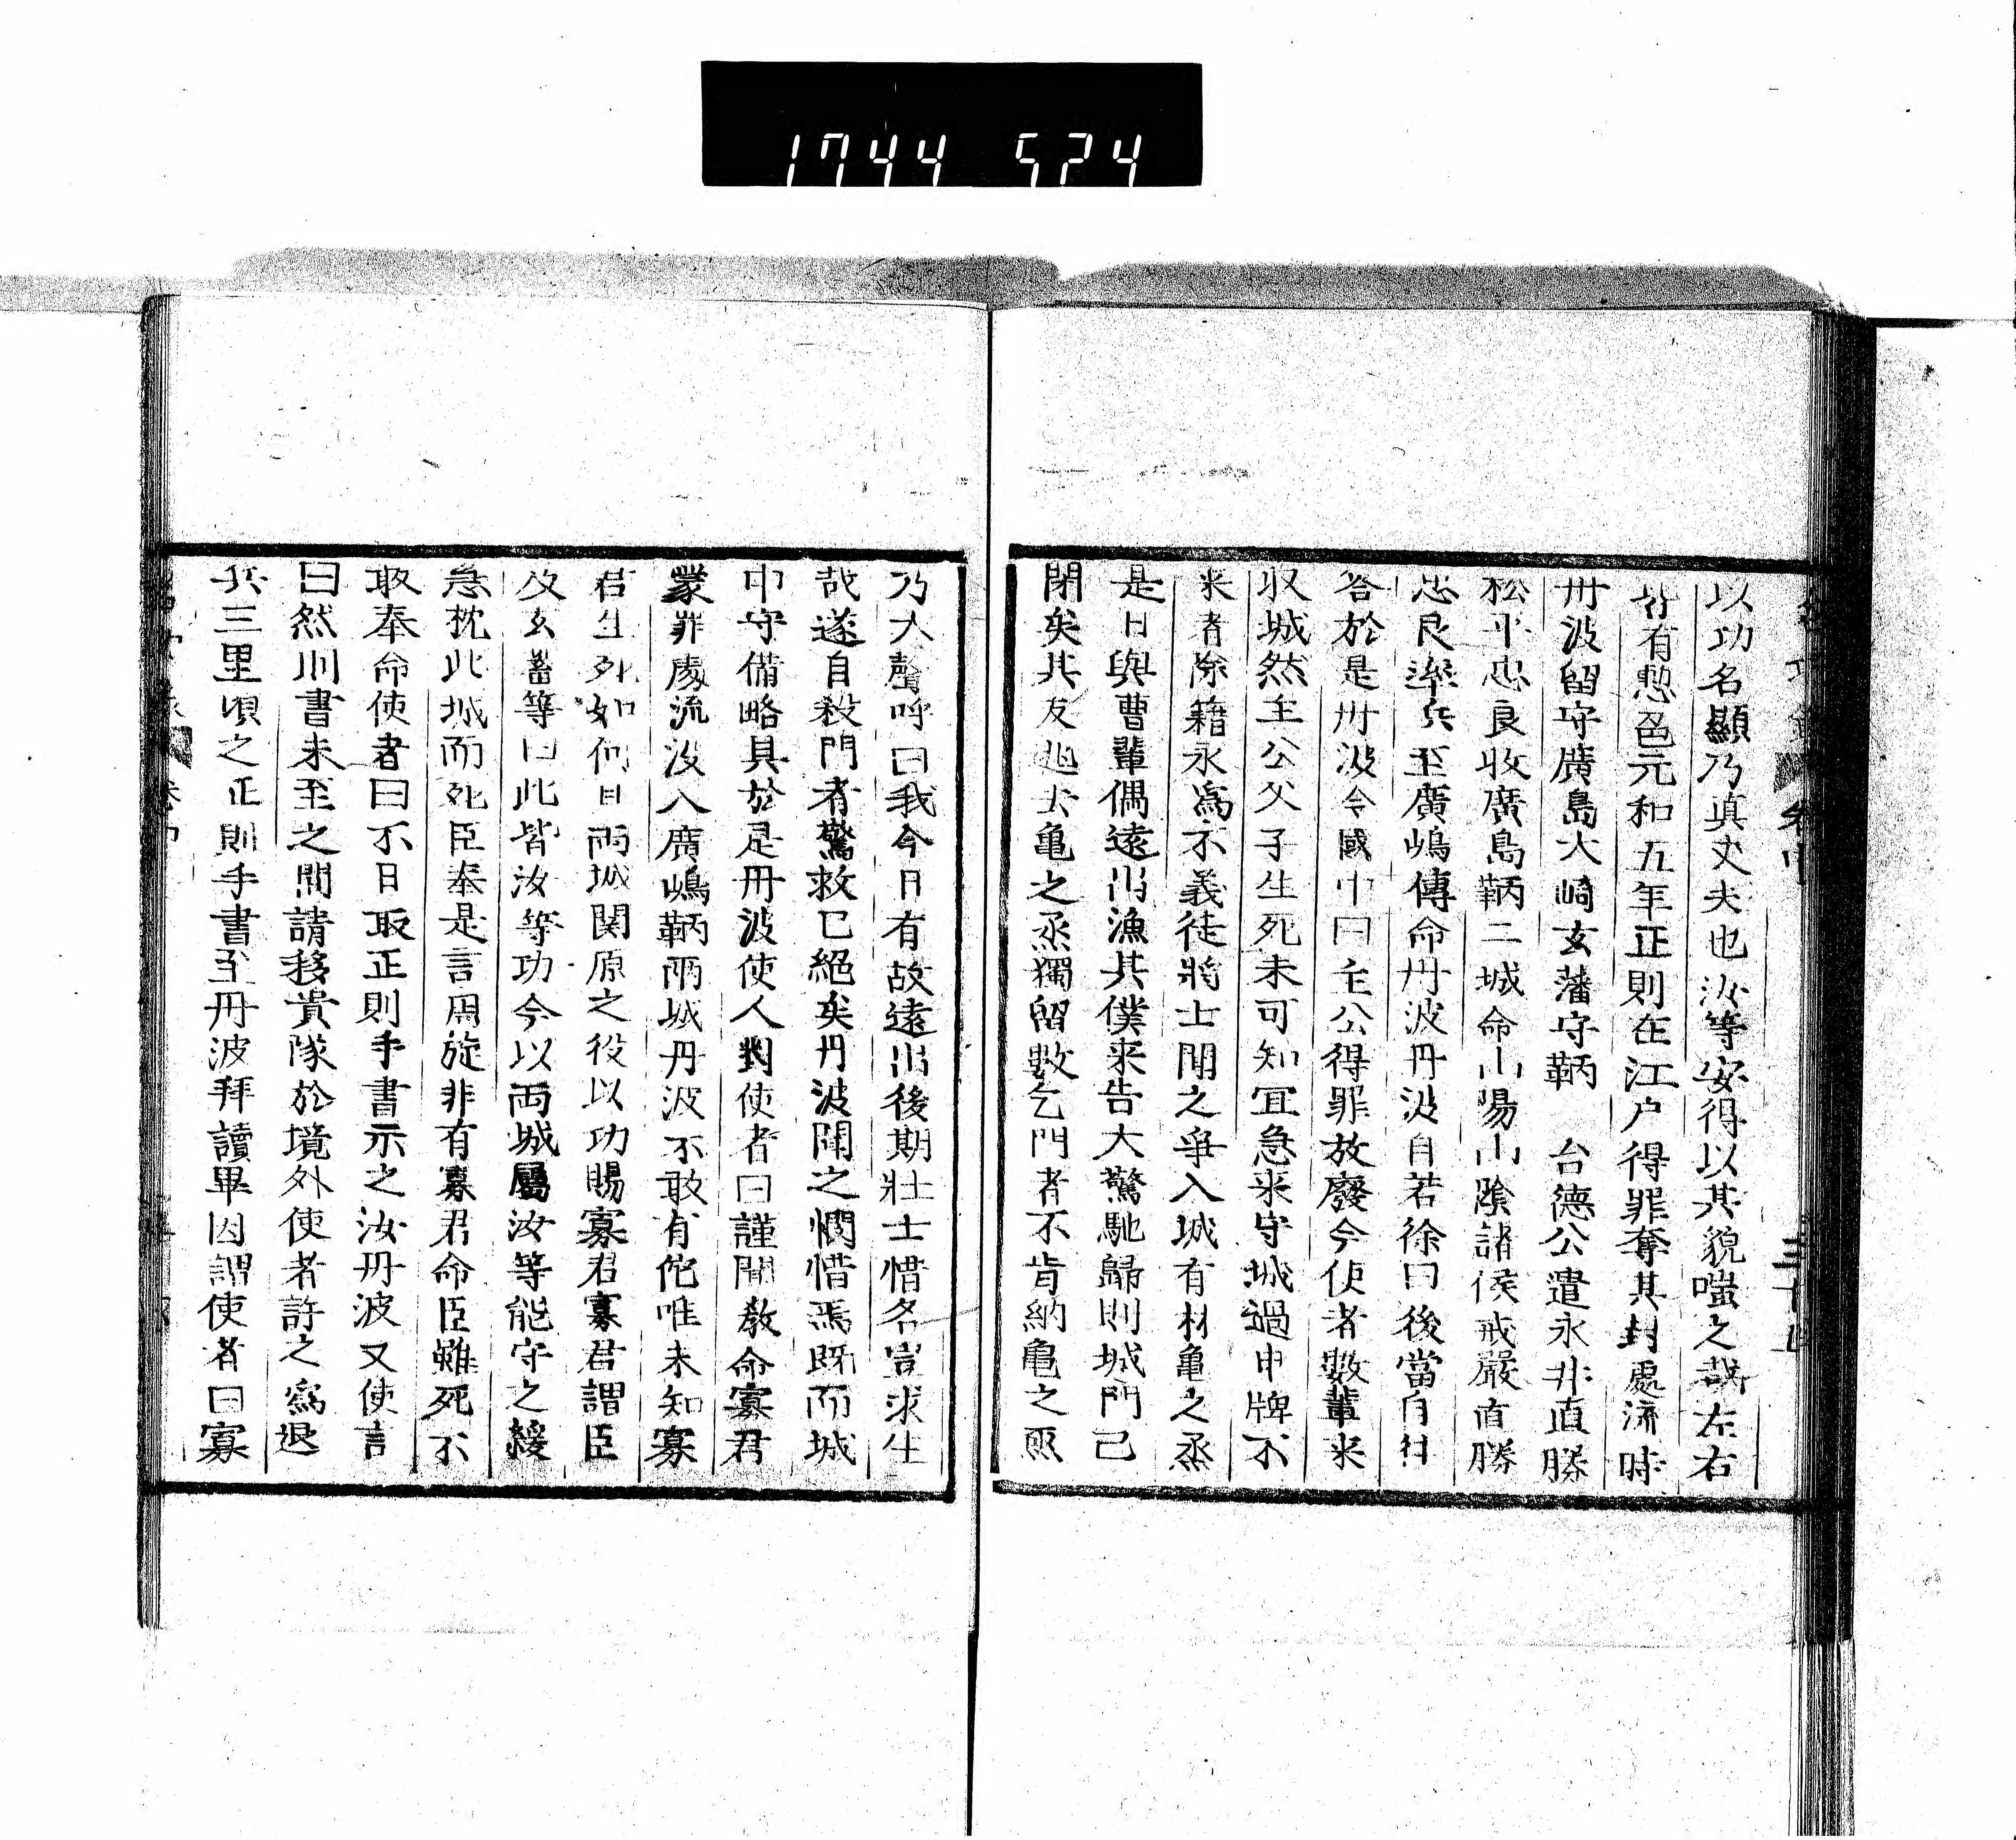 1744 524
以功名顯乃真丈夫也汝等安得以其貌嗤之哉左右
皆有慙色元和五年正則在江戶得罪奪其封處流時
丹波留守廣島大崎玄蕃守鞆　台德公遣永井直勝
松平忠良收廣島鞆二城命山陽山陰諸侯戒嚴直勝
忠良率兵至廣嶋傳命丹波丹波自若徐曰後當自
答於是丹波令國中曰主公得罪放廢今使者數輩來
収城然主公父子生死未可知冝急來守城過申牌不
来者除籍永為不義徒將士聞之爭入城有村亀之烝
是日與曹輩偶遠出漁其僕来告大驚馳歸則城門已
閉矣其友逃去亀之烝獨留數乞門者不肯納亀之烝
乃大聲呼曰我今日有故遠出後期壯士惜名豈求生
哉遂自殺門者驚救已絕矣丹波聞之憫惜焉既而城
中守備略具於是丹波使人對使者曰謹聞教命寡君
蒙罪處流没入廣嶋鞆兩城丹波不敢有佗唯未知寡
君生死如何且兩城関原之役以功賜寡君寡君謂臣
及玄蕃等曰此皆汝等功今以両城屬汝等能守之緩
急枕此城而死臣奉是言周旋非有寡君命臣雖死不
敢奉命使者曰不日取正則手書示之汝丹波又使言
曰然則書未至之間請移貴隊於境外使者許之為退
兵三里頃之正則手書至丹波拜讀畢因謂使者曰寡